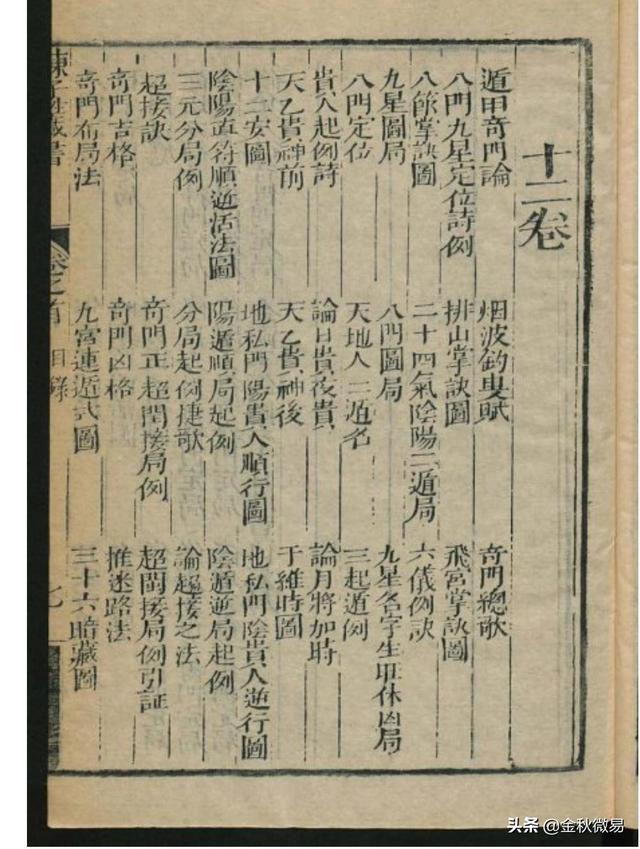 十二卷
遁甲奇門論 烟波釣叟賦 奇門總歌
八門九星定位詩例 排山掌訣圖 飛宮掌訣圖
八節掌訣圖 二十四氣陰陽二遁局 六儀例訣
九星圖局 八門圖局 九星名字生旺休凶局
八門定位 天地人三遁名 三起遁例
貴人起例詩 論日貴夜貴 論月將加時
天乙貴神前 天乙貴神後 于維時圖
十二安圖 地私門陽貴人順行圖 地私門陰貴人逆行圖
陰陽直符順逆活法圖 陽遁順局起例 陰遁逆局起例
三元分局例 分局起例捷歌 論超接之法
超接訣 奇門正超閏接局例 超閏接局例引証
奇門吉格 奇門凶格 推迷路法
奇門布局法 九宮連遁式圖 三十六暗藏圖
陳子性藏書 卷之首 目錄 七
头条 @金秋微易